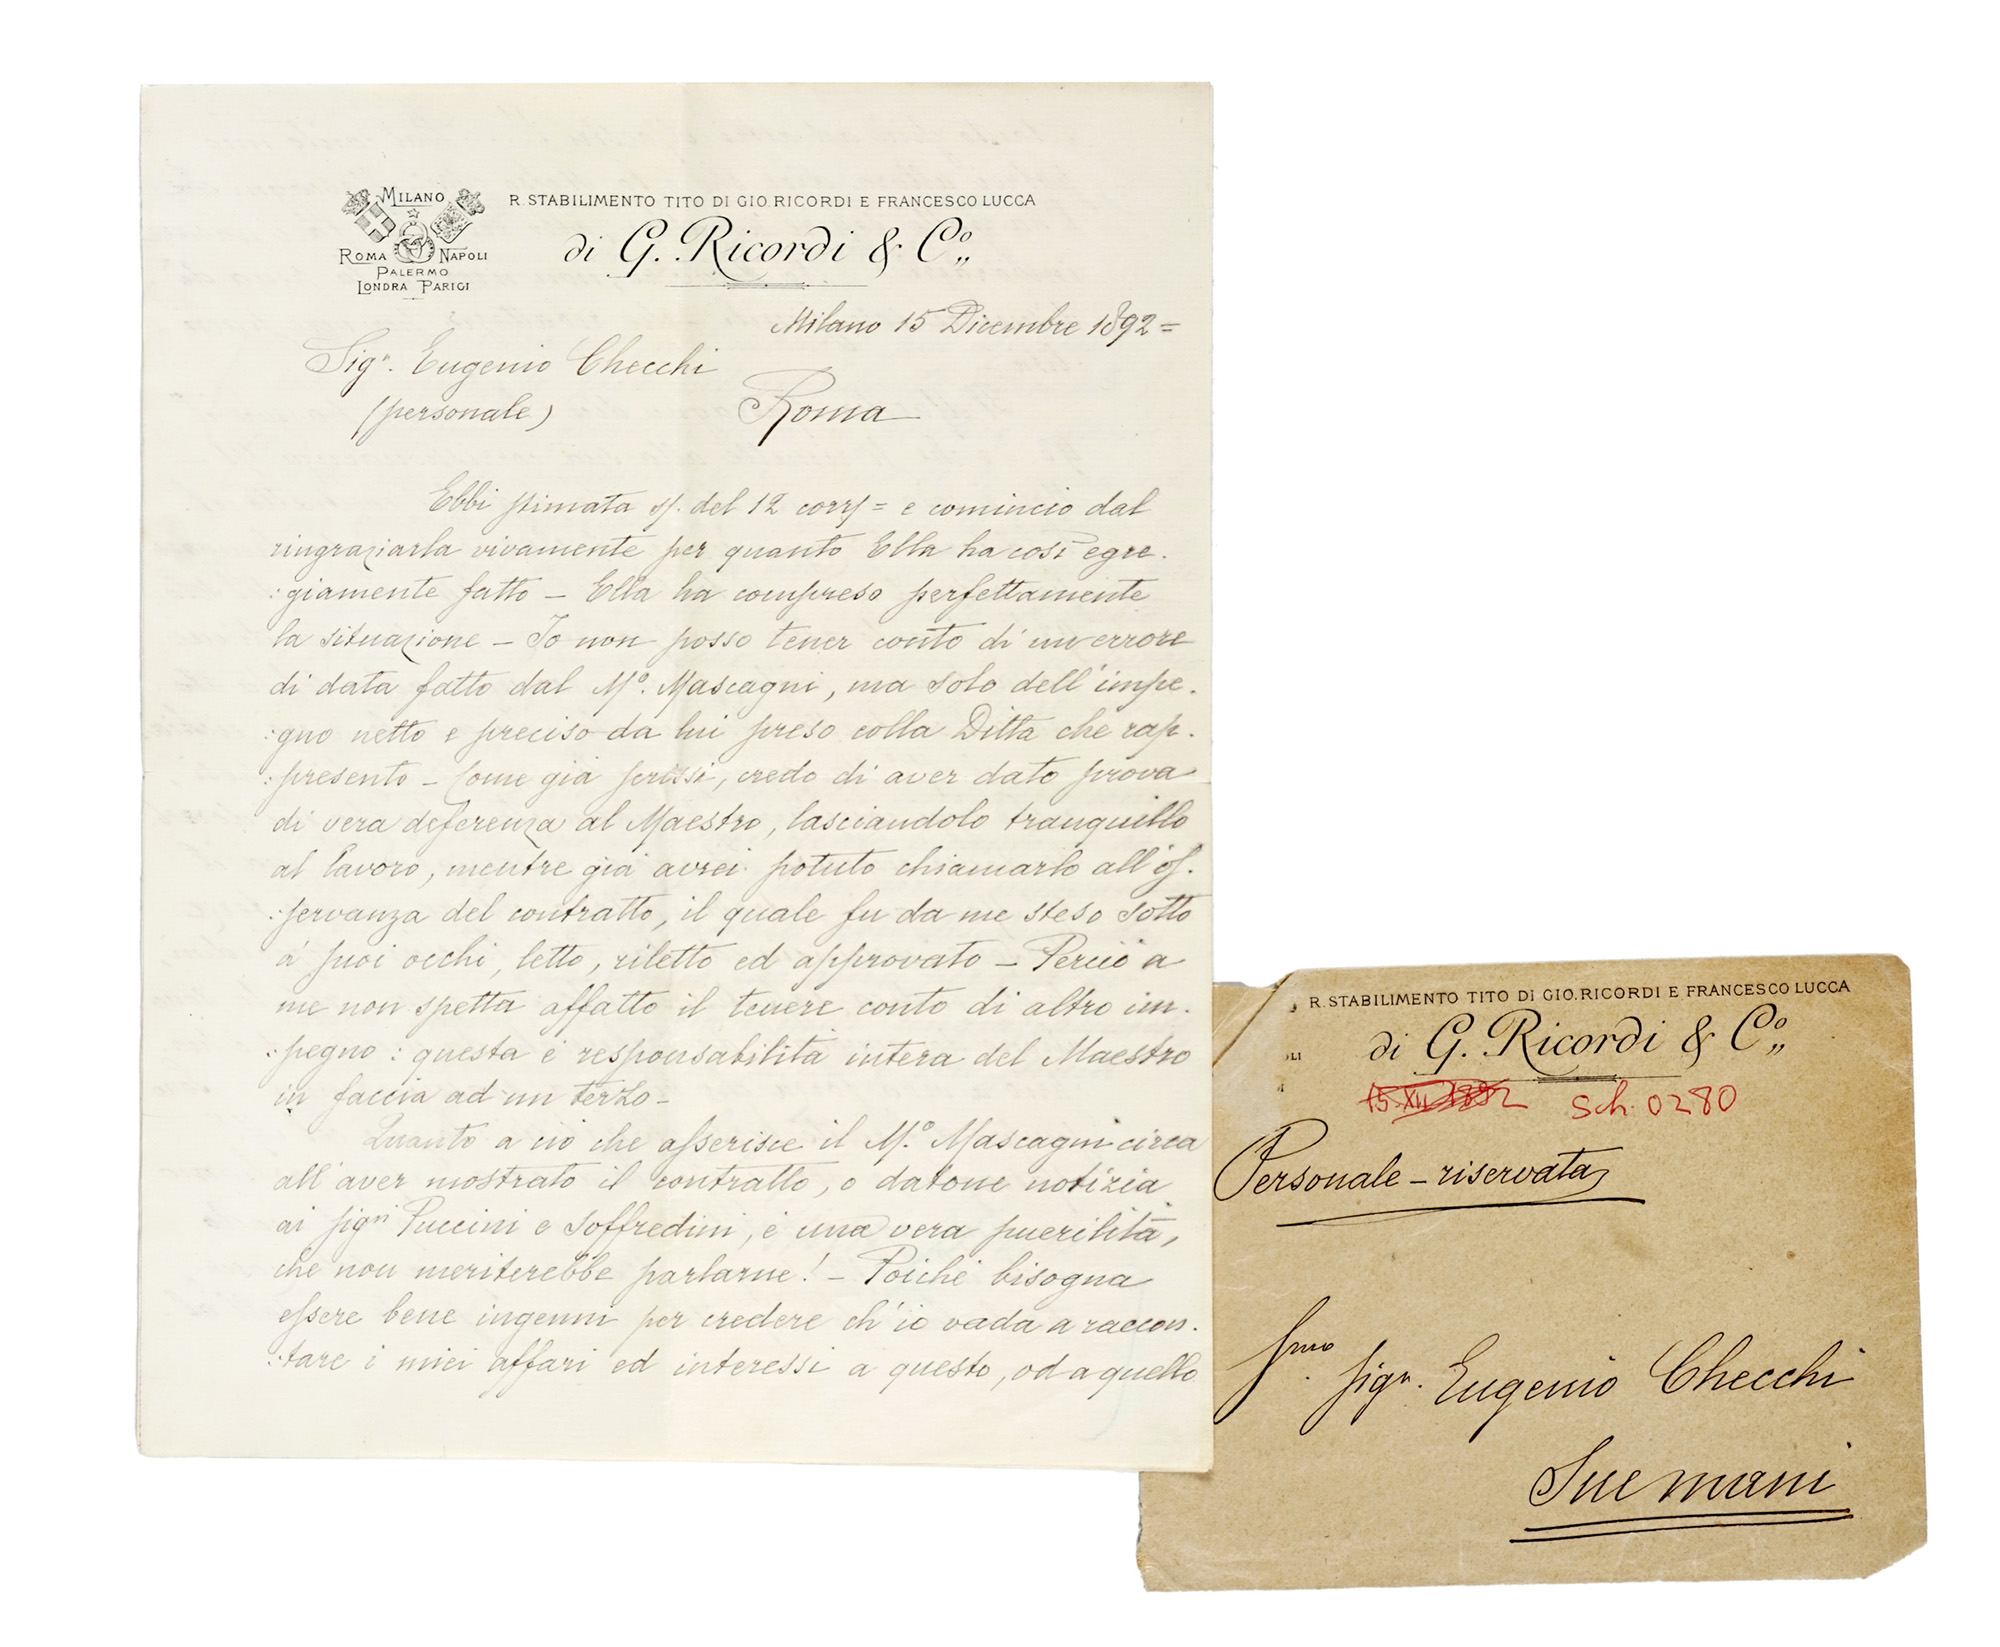 MILANO
ROMA NAPOLI
PALERMO
LONDRA PARIGI
R. STABILIMENTO TITO DI GIO. RICORDI E FRANCESCO LUCCA
di G. Ricordi & Co.,,
Milano 15 Dicembre 1892=
Sigr. Eugenio Checchi
(personale) Roma
Ebbi stimata sf. del 12 corr = e comincio dal
ringraziarla vivamente per quanto Ella ha così egre.
:giamente fatto – Ella ha compreso perfettamente
la situazione – Io non posso tener conto di un errore
di data fatto dal Mo. Mascagni, ma solo dell'impe.
:gno netto e preciso da lui preso colla Ditta che rap.
:presento – Come già scrissi, credo di aver dato prova
di vera deferenza al Maestro, lasciandolo tranquillo
al lavoro, mentre già avrei potuto chiamarlo all'os.
:servanza del contratto, il quale fu da me steso sotto
a' suoi occhi, letto, riletto ed approvato – Perciò a
me non spetta affatto il tenere conto di altro im.
:pegno : questa è responsabilità intera del Maestro
in faccia ad un terzo –
Quanto a ciò che asserisce il Mo. Mascagni circa
all'aver mostrato il contratto, o datone notizia
ai sigri Puccini e Soffredini, è una vera puerilità,
che non meriterebbe parlarne! – Poiché bisogna
essere bene ingenui per credere ch'io vada a raccon.
:tare i miei affari ed interessi a questo, od a quello
R. STABILIMENTO TITO DI GIO. RICORDI E FRANCESCO LUCCA
di G. Ricordi & Co.,,
OLI
15 XII 1892 Sch. 0280
Personale – riservata
Sigr. Eugenio Checchi
Sue mani